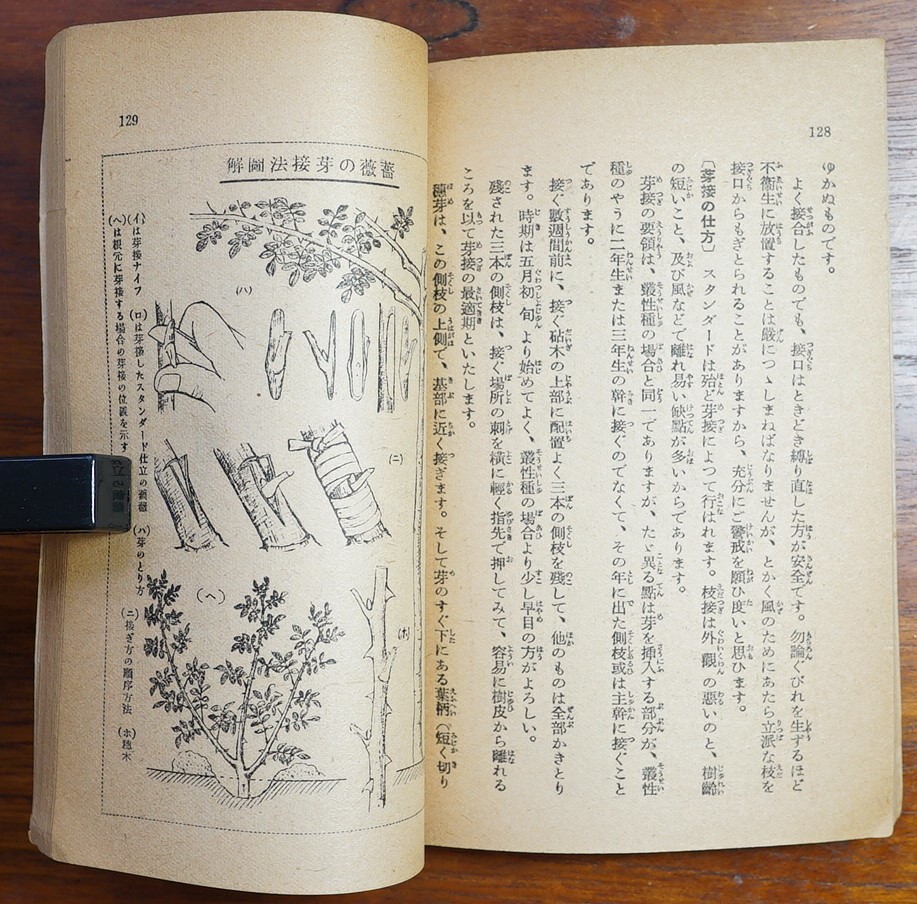 128
ゆかぬものです。
よく接合したものでも、接口はときどき縛り直した方が安全です。勿論くびれを生ずるほど
不衞生に放置することは嚴につゝしまねばなりませんが、とかく風のためにあたら立派な枝を
接口からもぎとられることがありますから、充分にご警戒を願ひ度いと思ひます。
〔芽接の仕方〕 スタンダードは殆ど芽接によつて行はれます。枝接は外觀の惡いのと、樹齡
の短いこと、及び風などで離れ易い缺點が多いからであります。
芽接の要領は、叢性種の場合と同一でありますが、たゞ異る點は芽を挿入する部分が、叢性
種のやうに二年生または三年生の幹に接ぐのでなくて、その年に出た側枝或は主幹に接ぐこと
であります。
接ぐ數週間前に、接ぐ砧木の上部に配置よく三本の側枝を殘して、他のものは全部かきとり
ます。時期は五月初旬より始めてよく、叢性種の場合より少し早目の方がよろしい。
殘された三本の側枝は、接ぐ場所の刺を橫に輕く指先で押してみて、容易に樹皮から離れる
ころを以て芽接の最適期といたします。
穗芽は、この側枝の上側で、基部に近く接ぎます。そして芽のすぐ下にある葉柄（短く切り
129
薔薇の芽接法圖解
(ハ)
(ニ)
(ホ)
(ヘ)
(イ)は芽接ナイフ (ロ)は芽接したスタンダード仕立の薔薇 (ハ)芽のとり方 (ニ)接ぎ方の順序方法 (ホ)穗木
(ヘ)は根元に芽接する場合の芽接の位置を示す